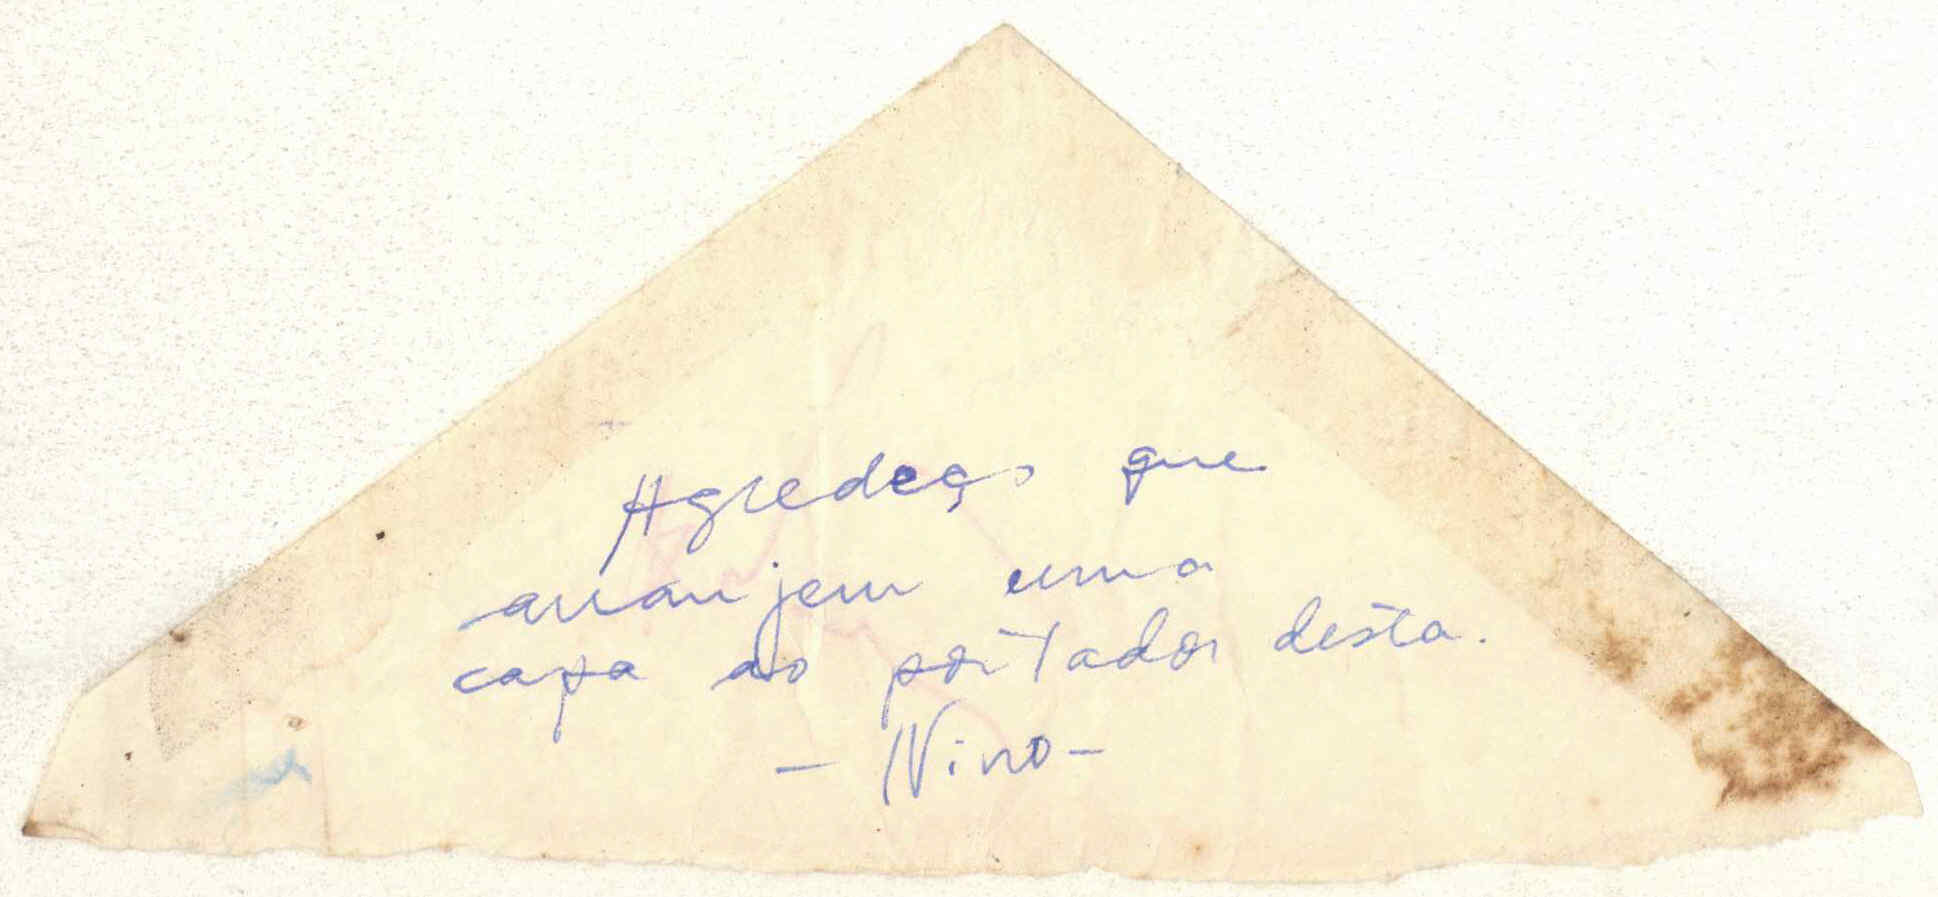 Agredeço que
arranjem uma
capa ao portador desta.
- Nino -